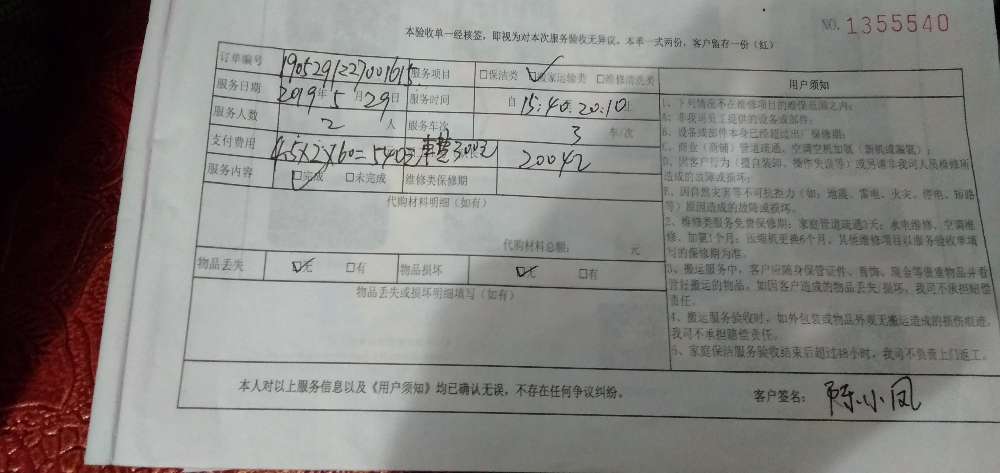 本验收单一经核签，即视为对本次服务验收无异议。本单一式两份，客户留存一份（红）
NO. 1355540
订单编号 服务项目 □保洁类 ☑搬家运输类 □维修清洗类
服务日期 2019年5月29日 服务时间 自 15:40-20:10
服务人数 2 人 服务车次 3 车/次
支付费用 4.5×2×60=540元 300元 2004元
服务内容 ☑完成 □未完成 维修类保修期
代购材料明细（如有）
代购材料总额： 元
物品丢失 ☑无 □有 物品损坏 ☑无 □有
物品丢失或损坏明细填写（如有）
用户须知
1、下列情况不在维修项目的维保范围之内：
A：非我司员工提供的设备或部件；
B、设备或部件本身已经超过出厂保修期；
C、商业（商铺）管道疏通，空调空机加氟（新机或漏氟）；
D、因客户行为（擅自装卸、操作失误等）或另请非我司人员维修所
造成的故障或损坏；
E、因自然灾害等不可抗拒力（如：地震、雷电、火灾、停电、短路
等）原因造成的故障或损坏。
2、维修类服务免费保修期：家庭管道疏通3天；水电维修、空调维
修、加氟1个月；压缩机更换6个月，其他维修项目以服务验收单填
写的保修期为准。
3、搬运服务中，客户应随身保管证件、首饰、现金等贵重物品并看
管好搬运的物品。如因客户造成的物品丢失/损坏，我司不承担赔偿
责任。
4、搬运服务验收时，如外包装或物品外观无搬运造成的损伤痕迹，
我司不承担赔偿责任。
5、家庭保洁服务验收结束后超过48小时，我司不负责上门返工。
本人对以上服务信息以及《用户须知》均已确认无误，不存在任何争议纠纷。
客户签名： 陈小凤